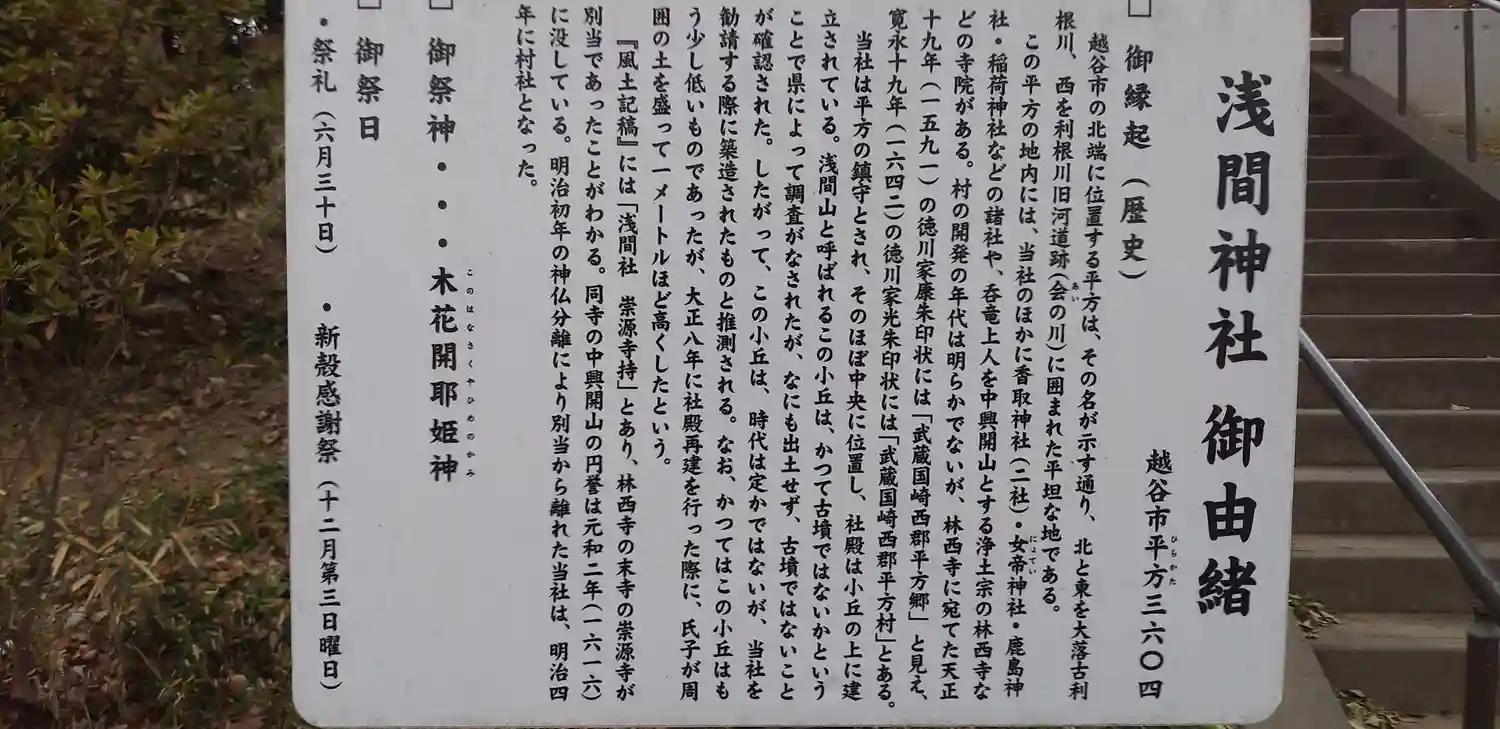 浅間神社 御由緒
越谷市平方三六〇四
ひらかた
□ 御縁起（歴史）
越谷市の北端に位置する平方は、その名が示す通り、北と東を大落古利
根川、西を利根川旧河道跡（会の川）に囲まれた平坦な地である。
あい
この平方の地内には、当社のほかに香取神社（二社）・女帝神社・鹿島神
にょてい
社・稲荷神社などの諸社や、呑竜上人を中興開山とする浄土宗の林西寺な
どの寺院がある。村の開発の年代は明らかでないが、林西寺に宛てた天正
十九年（一五九一）の徳川家康朱印状には「武蔵国崎西郡平方郷」と見え、
寛永十九年（一六四二）の徳川家光朱印状には「武蔵国崎西郡平方村」とある。
当社は平方の鎮守とされ、そのほぼ中央に位置し、社殿は小丘の上に建
立されている。浅間山と呼ばれるこの小丘は、かつて古墳ではないかという
ことで県によって調査がなされたが、なにも出土せず、古墳ではないこと
が確認された。したがって、この小丘は、時代は定かではないが、当社を
勧請する際に築造されたものと推測される。なお、かつてはこの小丘はも
う少し低いものであったが、大正八年に社殿再建を行った際に、氏子が周
囲の土を盛って一メートルほど高くしたという。
『風土記稿』には「浅間社 崇源寺持」とあり、林西寺の末寺の崇源寺が
別当であったことがわかる。同寺の中興開山の円誉は元和二年（一六一六）
に没している。明治初年の神仏分離により別当から離れた当社は、明治四
年に村社となった。
□ 御祭神・・・木花開耶姫神
このはなさくやひめのかみ
□ 御祭日
・祭礼（六月三十日） ・新殻感謝祭（十二月第三日曜日）